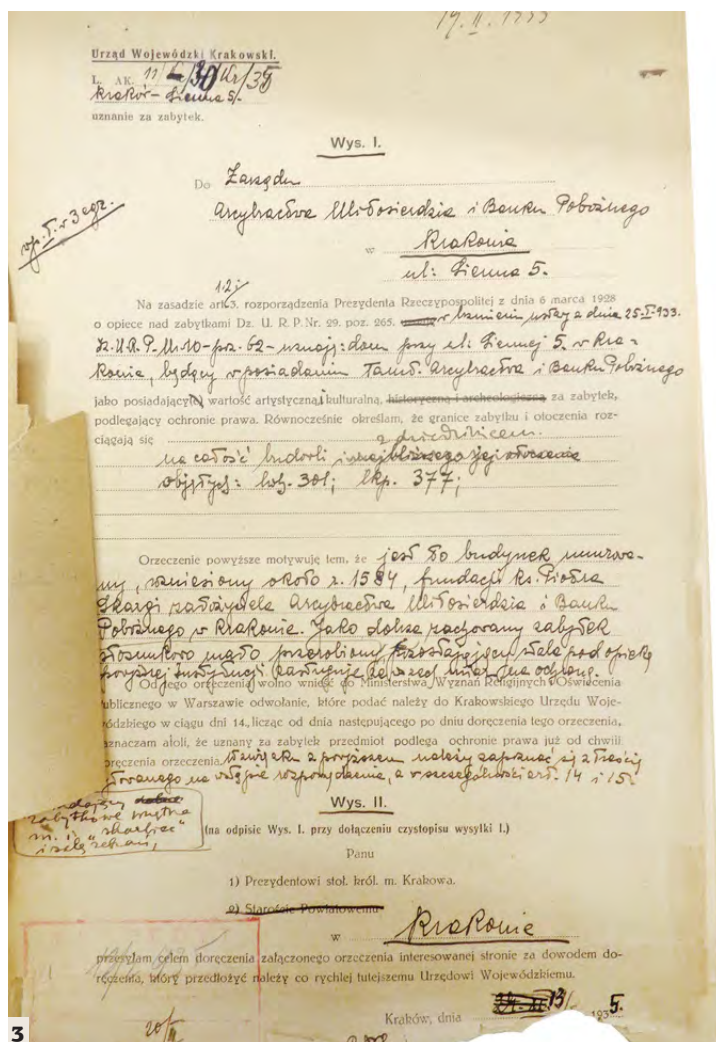 19. II. 1935
Urząd Wojewódzki Krakowski.
L. AK. 11 /30/Kr/35
Kraków – Sienna 5/.
uznanie za zabytek.
Wys. I.
Do Zarządu
Arcybractwa Miłosierdzia i Banku Pobożnego
w Krakowie
ul: Sienna 5.
wp. I. w 3 egz.
1.2;
Na zasadzie art. 3. rozporządzenia Prezydenta Rzeczypospolitej z dnia 6 marca 1928
o opiece nad zabytkami Dz. U. R. P. Nr. 29. poz. 265. w brzmieniu ustawy z dnia 25-I-933.
Dz. U. R. P. Nr. 10 – poz. 62 – uznaję: dom przy ul: Siennej 5. w Kra-
kowie, będący w posiadaniu Tamt. Arcybractwa i Banku Pobożnego
jako posiadający(e) wartość artystyczną i kulturalną, historyczną i archeologiczną za zabytek,
podlegający ochronie prawa. Równocześnie określam, że granice zabytku i otoczenia roz-
ciągają się
z dziedzińcem.
na całość budowli i najbliższego jej otoczenia
objętych: lwh. 301; lkp. 377;
Orzeczenie powyższe motywuję tem, że jest to budynek murowa-
ny, wzniesiony około r. 1584, fundacji ks. Piotra
Skargi założyciela Arcybractwa Miłosierdzia i Banku
Pobożnego w Krakowie. Jako dobrze zachowany zabytek
stosunkowo mało przerobiony i pozostający stale pod opieką
powyższej Instytucji zasługuje ze wszech miar na ochronę.
Od tego orzeczenia wolno wnieść do Ministerstwa Wyznań Religijnych i Oświecenia
Publicznego w Warszawie odwołanie, które podać należy do Krakowskiego Urzędu Woje-
wódzkiego w ciągu dni 14, licząc od dnia następującego po dniu doręczenia tego orzeczenia,
zaznaczam atoli, że uznany za zabytek przedmiot podlega ochronie prawa już od chwili
doręczenia orzeczenia. W związku z powyższem należy zapoznać się z treścią
na wstępie rozporządzenia, a w szczególności art. 14 i 15.
zabytkowe wnętrza
m. i. "skarbiec"
Wys. II.
(na odpisie Wys. I. przy dołączeniu czystopisu wysyłki I.)
Panu
1) Prezydentowi stoł. król. m. Krakowa.
2) Staroście Powiatowemu
w Krakowie
przesyłam celem doręczenia załączonego orzeczenia interesowanej stronie za dowodem do-
ręczenia, który przedłożyć należy co rychlej tutejszemu Urzędowi Wojewódzkiemu.
Kraków, dnia 13/ 1935.
20/II
3